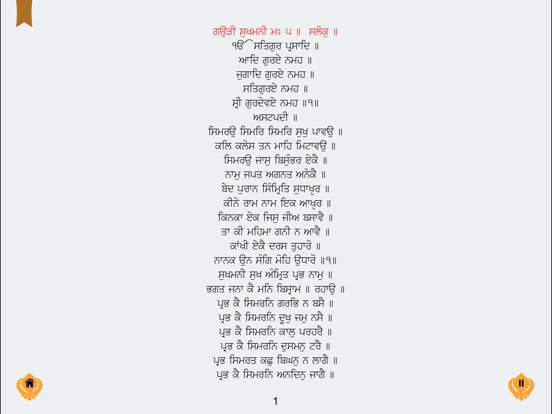 ਗਉੜੀ ਸੁਖਮਨੀ ਮਃ ੫ ॥ ਸਲੋਕੁ ॥
ੴ ਸਤਿਗੁਰ ਪ੍ਰਸਾਦਿ ॥
ਆਦਿ ਗੁਰਏ ਨਮਹ ॥
ਜੁਗਾਦਿ ਗੁਰਏ ਨਮਹ ॥
ਸਤਿਗੁਰਏ ਨਮਹ ॥
ਸ੍ਰੀ ਗੁਰਦੇਵਏ ਨਮਹ ॥੧॥
ਅਸਟਪਦੀ ॥
ਸਿਮਰਉ ਸਿਮਰਿ ਸਿਮਰਿ ਸੁਖੁ ਪਾਵਉ ॥
ਕਲਿ ਕਲੇਸ ਤਨ ਮਾਹਿ ਮਿਟਾਵਉ ॥
ਸਿਮਰਉ ਜਾਸੁ ਬਿਸੁੰਭਰ ਏਕੈ ॥
ਨਾਮੁ ਜਪਤ ਅਗਨਤ ਅਨੇਕੈ ॥
ਬੇਦ ਪੁਰਾਨ ਸਿੰਮ੍ਰਿਤਿ ਸੁਧਾਖੵਰ ॥
ਕੀਨੇ ਰਾਮ ਨਾਮ ਇਕ ਆਖੵਰ ॥
ਕਿਨਕਾ ਏਕ ਜਿਸੁ ਜੀਅ ਬਸਾਵੈ ॥
ਤਾ ਕੀ ਮਹਿਮਾ ਗਨੀ ਨ ਆਵੈ ॥
ਕਾਂਖੀ ਏਕੈ ਦਰਸ ਤੁਹਾਰੋ ॥
ਨਾਨਕ ਉਨ ਸੰਗਿ ਮੋਹਿ ਉਧਾਰੋ ॥੧॥
ਸੁਖਮਨੀ ਸੁਖ ਅੰਮ੍ਰਿਤ ਪ੍ਰਭ ਨਾਮੁ ॥
ਭਗਤ ਜਨਾ ਕੈ ਮਨਿ ਬਿਸ੍ਰਾਮ ॥ ਰਹਾਉ ॥
ਪ੍ਰਭ ਕੈ ਸਿਮਰਨਿ ਗਰਭਿ ਨ ਬਸੈ ॥
ਪ੍ਰਭ ਕੈ ਸਿਮਰਨਿ ਦੂਖੁ ਜਮੁ ਨਸੈ ॥
ਪ੍ਰਭ ਕੈ ਸਿਮਰਨਿ ਕਾਲੁ ਪਰਹਰੈ ॥
ਪ੍ਰਭ ਕੈ ਸਿਮਰਨਿ ਦੁਸਮਨੁ ਟਰੈ ॥
ਪ੍ਰਭ ਸਿਮਰਤ ਕਛੁ ਬਿਘਨੁ ਨ ਲਾਗੈ ॥
ਪ੍ਰਭ ਕੈ ਸਿਮਰਨਿ ਅਨਦਿਨੁ ਜਾਗੈ ॥
1